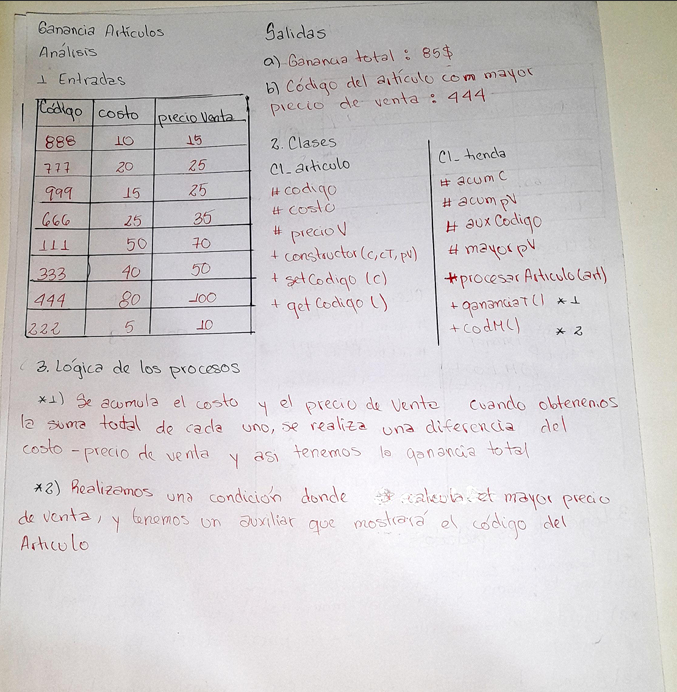 Ganancia Artículos
Análisis
1 Entradas
Código costo precio Venta
888 10 15
777 20 25
999 15 25
666 25 35
111 50 70
333 40 50
444 80 100
222 5 10
Salidas
a) Ganancia total : 85$
b) Código del artículo con mayor
precio de venta : 444
2. Clases
Cl_articulo
# codigo
# costo
# precioV
+ constructor (c, cT, pV)
+ setCodigo (c)
+ getCodigo ()
Cl_tienda
# acumC
# acumpV
# auxCodigo
# mayorpV
+ procesarArticulo (art)
+ gananciaT() *1
+ codM() *2
3. Lógica de los procesos
*1) Se acumula el costo y el precio de venta cuando obtenemos
la suma total de cada uno, se realiza una diferencia del
costo - precio de venta y asi tenemos la ganancia total
*2) Realizamos una condición donde calcula el mayor precio
de venta, y tenemos un auxiliar que mostrará el código del
Articulo